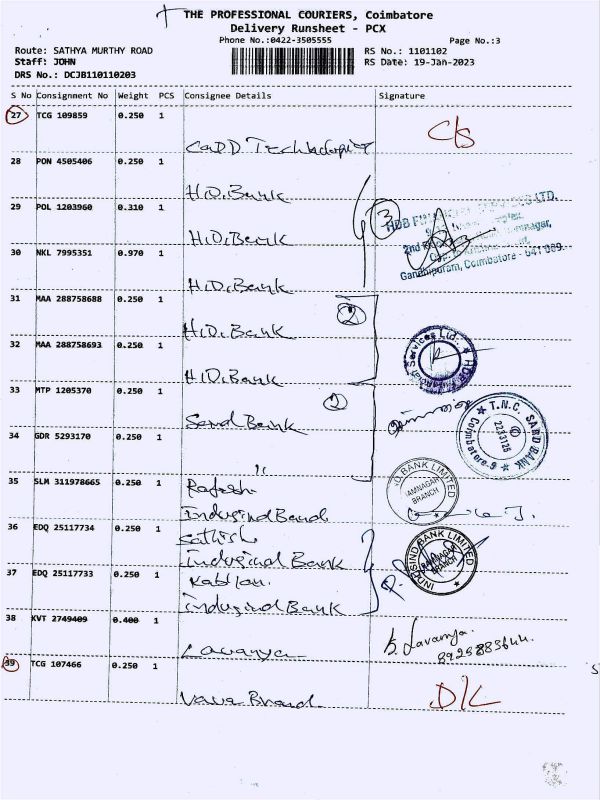 THE PROFESSIONAL COURIERS, Coimbatore
Delivery Runsheet - PCX
Phone No.:0422-3505555
Page No.:3
Route: SATHYA MURTHY ROAD
RS No.: 1101102
Staff: JOHN
RS Date: 19-Jan-2023
DRS No.: DCJB110110203
S No Consignment No Weight PCS Consignee Details Signature
27 TCG 109859 0.250 1
C/s
CADD Technologies
28 PON 4505406 0.250 1
H.D.Bank
29 POL 1203960 0.310 1
3
HDB FINANCIAL SERVICES LTD.
H.D.Bank
Gandhipuram, Coimbatore - 641 009.
30 NKL 7995351 0.970 1
H.D.Bank
31 MAA 288758688 0.250 1
2
H.D.Bank
32 MAA 288758693 0.250 1
HDB Financial Services Ltd.
H.D.Bank
33 MTP 1205370 0.250 1
2
T.N.C. SARD BANK
Coimbatore-9
2233126
Sard Bank
34 GDR 5293170 0.250 1
"
35 SLM 311978665 0.250 1
Rajesh
BANK LIMITED
RAMNAGAR
BRANCH
Indusind Band
36 EDQ 25117734 0.250 1
Sathish
Indusind Bank
INDUSIND BANK LIMITED
RAMNAGAR
BRANCH
37 EDQ 25117733 0.250 1
Indusind Bank
38 KVT 2749409 0.400 1
K. Lavanya
Lavanya
39 TCG 107466 0.250 1
D/L